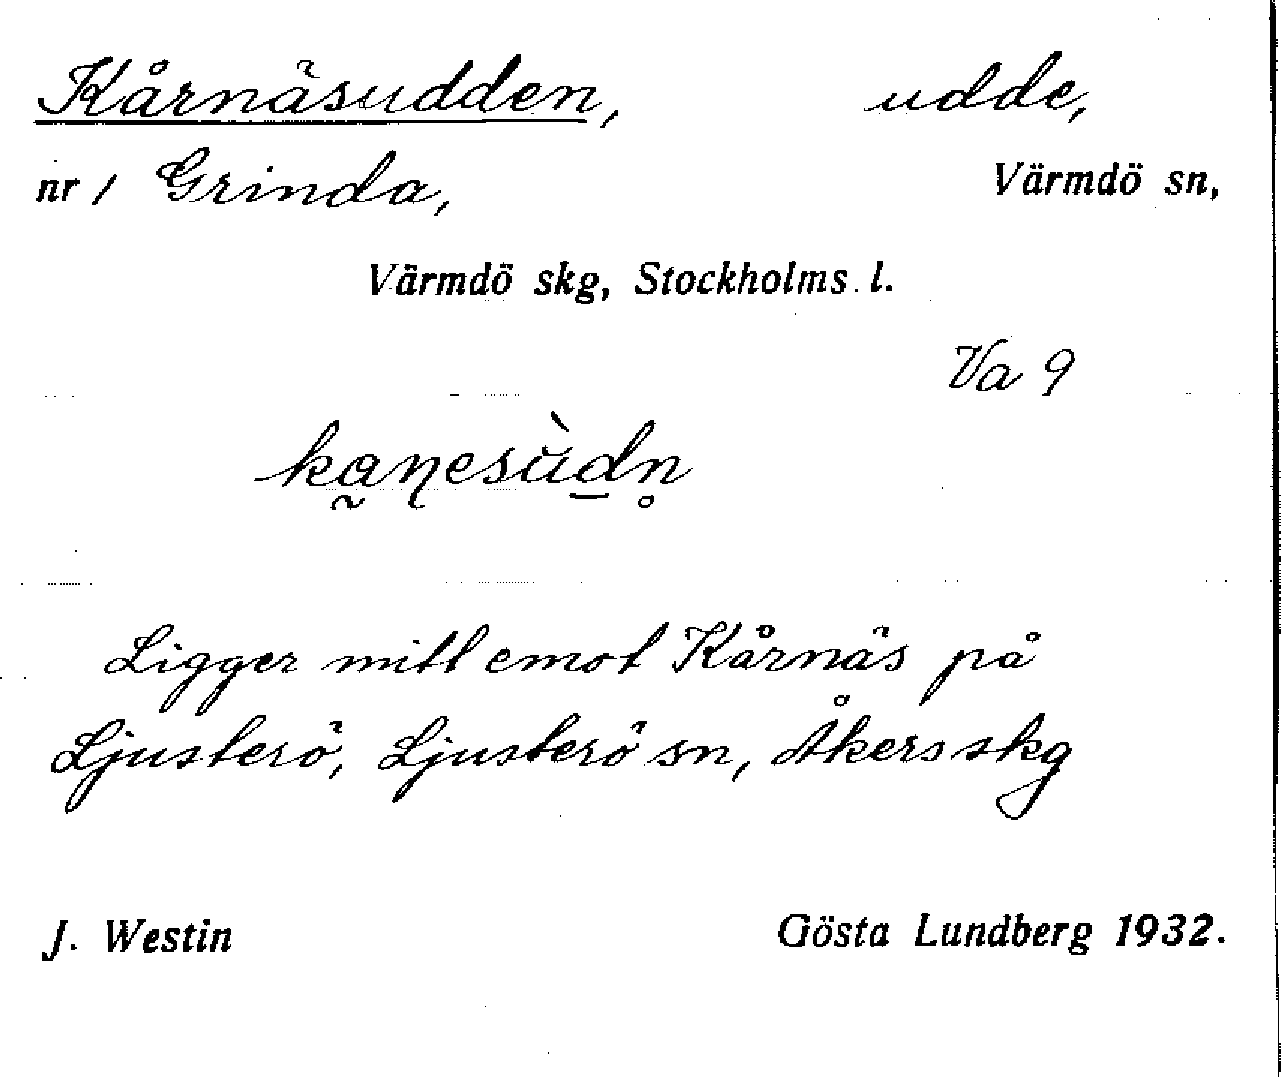 Kårnäsudden, udde,
nr 1 Grinda, Värmdö sn,
Värmdö skg, Stockholms l.
Va 9
ka̰ɳesùd̲n̥
Ligger mitt emot Kårnäs på
Ljusterö, Ljusterö sn, Åkers skg
J. Westin Gösta Lundberg 1932.